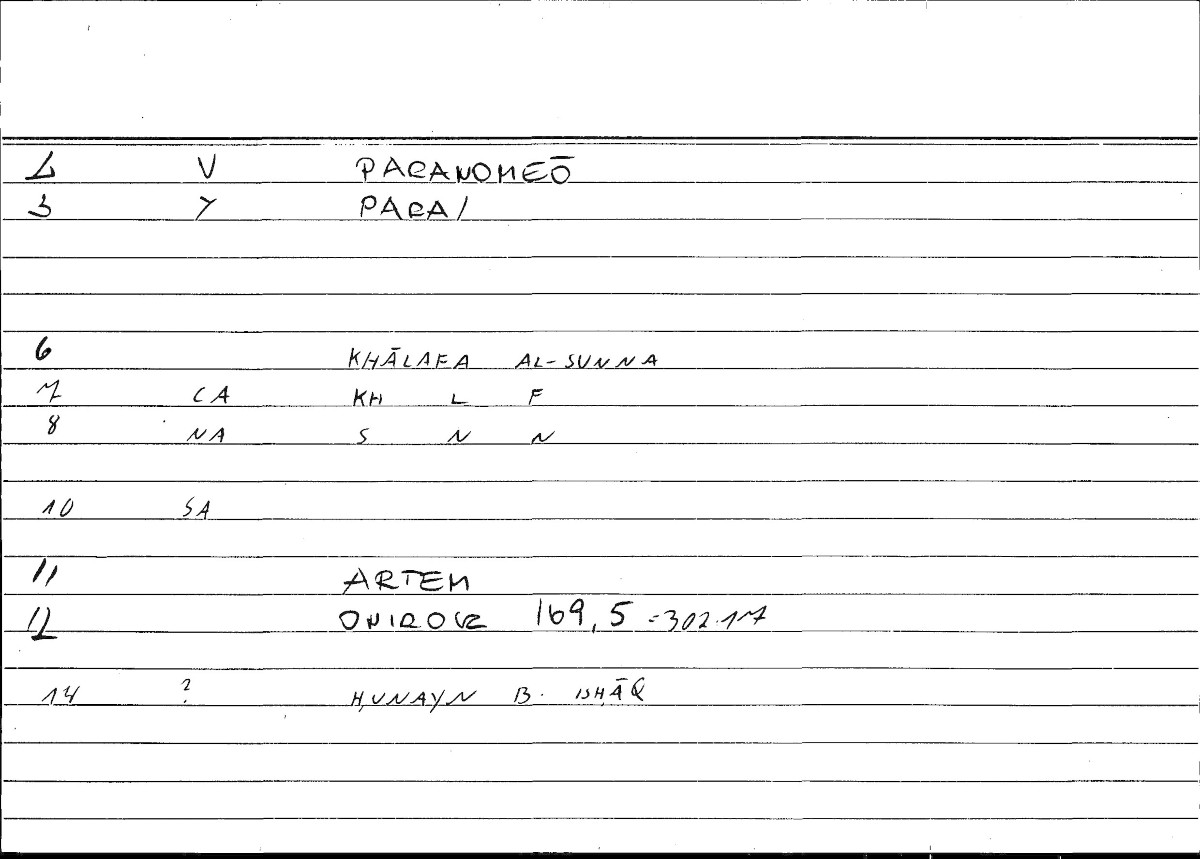 2 V PARANOMEŌ
3 Y PARA/
6 KHĀLAFA AL-SUNNA
7 CA KH L F
8 NA S N N
10 SA
11 ARTEM
12 ONIROCR 169,5 =302.17
14 ? ḤUNAYN B. ISḤĀQ